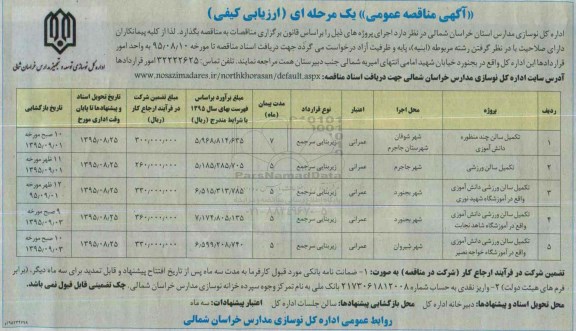 «آگهی مناقصه عمومی» یک مرحله ای (ارزیابی کیفی)
اداره کل نوسازی مدارس استان خراسان شمالی در نظر دارد اجرای پروژه های ذیل را براساس قانون برگزاری مناقصات به مناقصه بگذارد. لذا از کلیه پیمانکاران
دارای صلاحیت با در نظر گرفتن رشته مربوطه (ابنیه)، پایه و ظرفیت آزاد درخواست می گردد جهت دریافت اسناد مناقصه تا مورخه ۹۵/۰۸/۱۰ به واحد امور
قراردادها این اداره کل واقع در بجنورد خیابان شهید امامی انتهای امیریه شمالی جنب دبیرستان همت مراجعه نمایند. تلفن تماس: ۳۲۲۲۲۶۲۵ امور قراردادها
آدرس سایت اداره کل نوسازی مدارس خراسان شمالی جهت دریافت اسناد مناقصه: www.nosazimadares.ir/northkhorasan/default.aspx
اداره کل نوسازی توسعه و تجهیز مدارس خراسان شمالی
ردیف | پروژه | محل اجرا | اعتبار | نوع قرارداد | مدت پیمان (ماه) | مبلغ برآورد براساس فهرست بهای سال ۱۳۹۵ با شرایط مندرج (ریال) | مبلغ تضمین شرکت در فرآیند ارجاع کار (ریال) | تاریخ تحویل اسناد و پیشنهادها تا پایان وقت اداری مورخ | تاریخ بازگشایی
۱ | تکمیل سالن چند منظوره دانش آموزی | شهر شوقان شهرستان جاجرم | عمرانی | زیربنایی سرجمع | ۷ | ۵/۹۶۸/۸۱۴/۶۳۵ | ۳۰۰/۰۰۰/۰۰۰ | ۱۳۹۵/۰۸/۲۵ | ۱۰ صبح مورخه ۱۳۹۵/۰۹/۰۱
۲ | تکمیل سالن ورزشی | شهر جاجرم | عمرانی | زیربنایی سرجمع | ۵ | ۵/۱۸۵/۲۸۵/۷۰۵ | ۲۶۰/۰۰۰/۰۰۰ | ۱۳۹۵/۰۸/۲۵ | ۱۱ ظهر مورخه ۱۳۹۵/۰۹/۰۱
۳ | تکمیل سالن ورزشی دانش آموزی واقع در آموزشگاه شهید نوری | شهر بجنورد | عمرانی | زیربنایی سرجمع | ۵ | ۶/۵۱۵/۳۱۳/۷۸۵ | ۳۳۰/۰۰۰/۰۰۰ | ۱۳۹۵/۰۸/۲۵ | ۱۲ ظهر مورخه ۱۳۹۵/۰۹/۰۱
۴ | تکمیل سالن ورزشی دانش آموزی واقع در آموزشگاه شاهد نجابت | شهر بجنورد | عمرانی | زیربنایی سرجمع | ۵ | ۷/۱۷۴/۸۰۵/۱۳۵ | ۳۶۰/۰۰۰/۰۰۰ | ۱۳۹۵/۰۸/۲۵ | ۹ صبح مورخه ۱۳۹۵/۰۹/۰۳
۵ | تکمیل سالن ورزشی دانش آموزی واقع در آموزشگاه خواجه نصیر | شهر شیروان | عمرانی | زیربنایی سرجمع | ۵ | ۶/۵۹۹/۲۰۸/۷۴۰ | ۳۳۰/۰۰۰/۰۰۰ | ۱۳۹۵/۰۸/۲۵ | ۱۰ صبح مورخه ۱۳۹۵/۰۹/۰۳
تضمین شرکت در فرآیند ارجاع کار (شرکت در مناقصه) به صورت: ۱- ضمانت نامه بانکی مورد قبول کارفرما به مدت سه ماه پس از تاریخ افتتاح پیشنهاد و قابل تمدید برای سه ماه دیگر، (برابر
فرم های هیئت دولت) ۲- واریز نقدی به حساب شماره ۲۱۷۳۰۶۱۸۱۲۰۰۸ بانک ملی به نام تمرکز وجوه سپرده خزانه نوسازی مدارس خراسان شمالی. چک تضمینی قابل قبول نمی باشد.
محل تحویل اسناد و پیشنهادها: دبیرخانه اداره کل محل بازگشایی پیشنهادها: سالن جلسات اداره کل اعتبار پیشنهادات: سه ماه
روابط عمومی اداره کل نوسازی مدارس خراسان شمالی